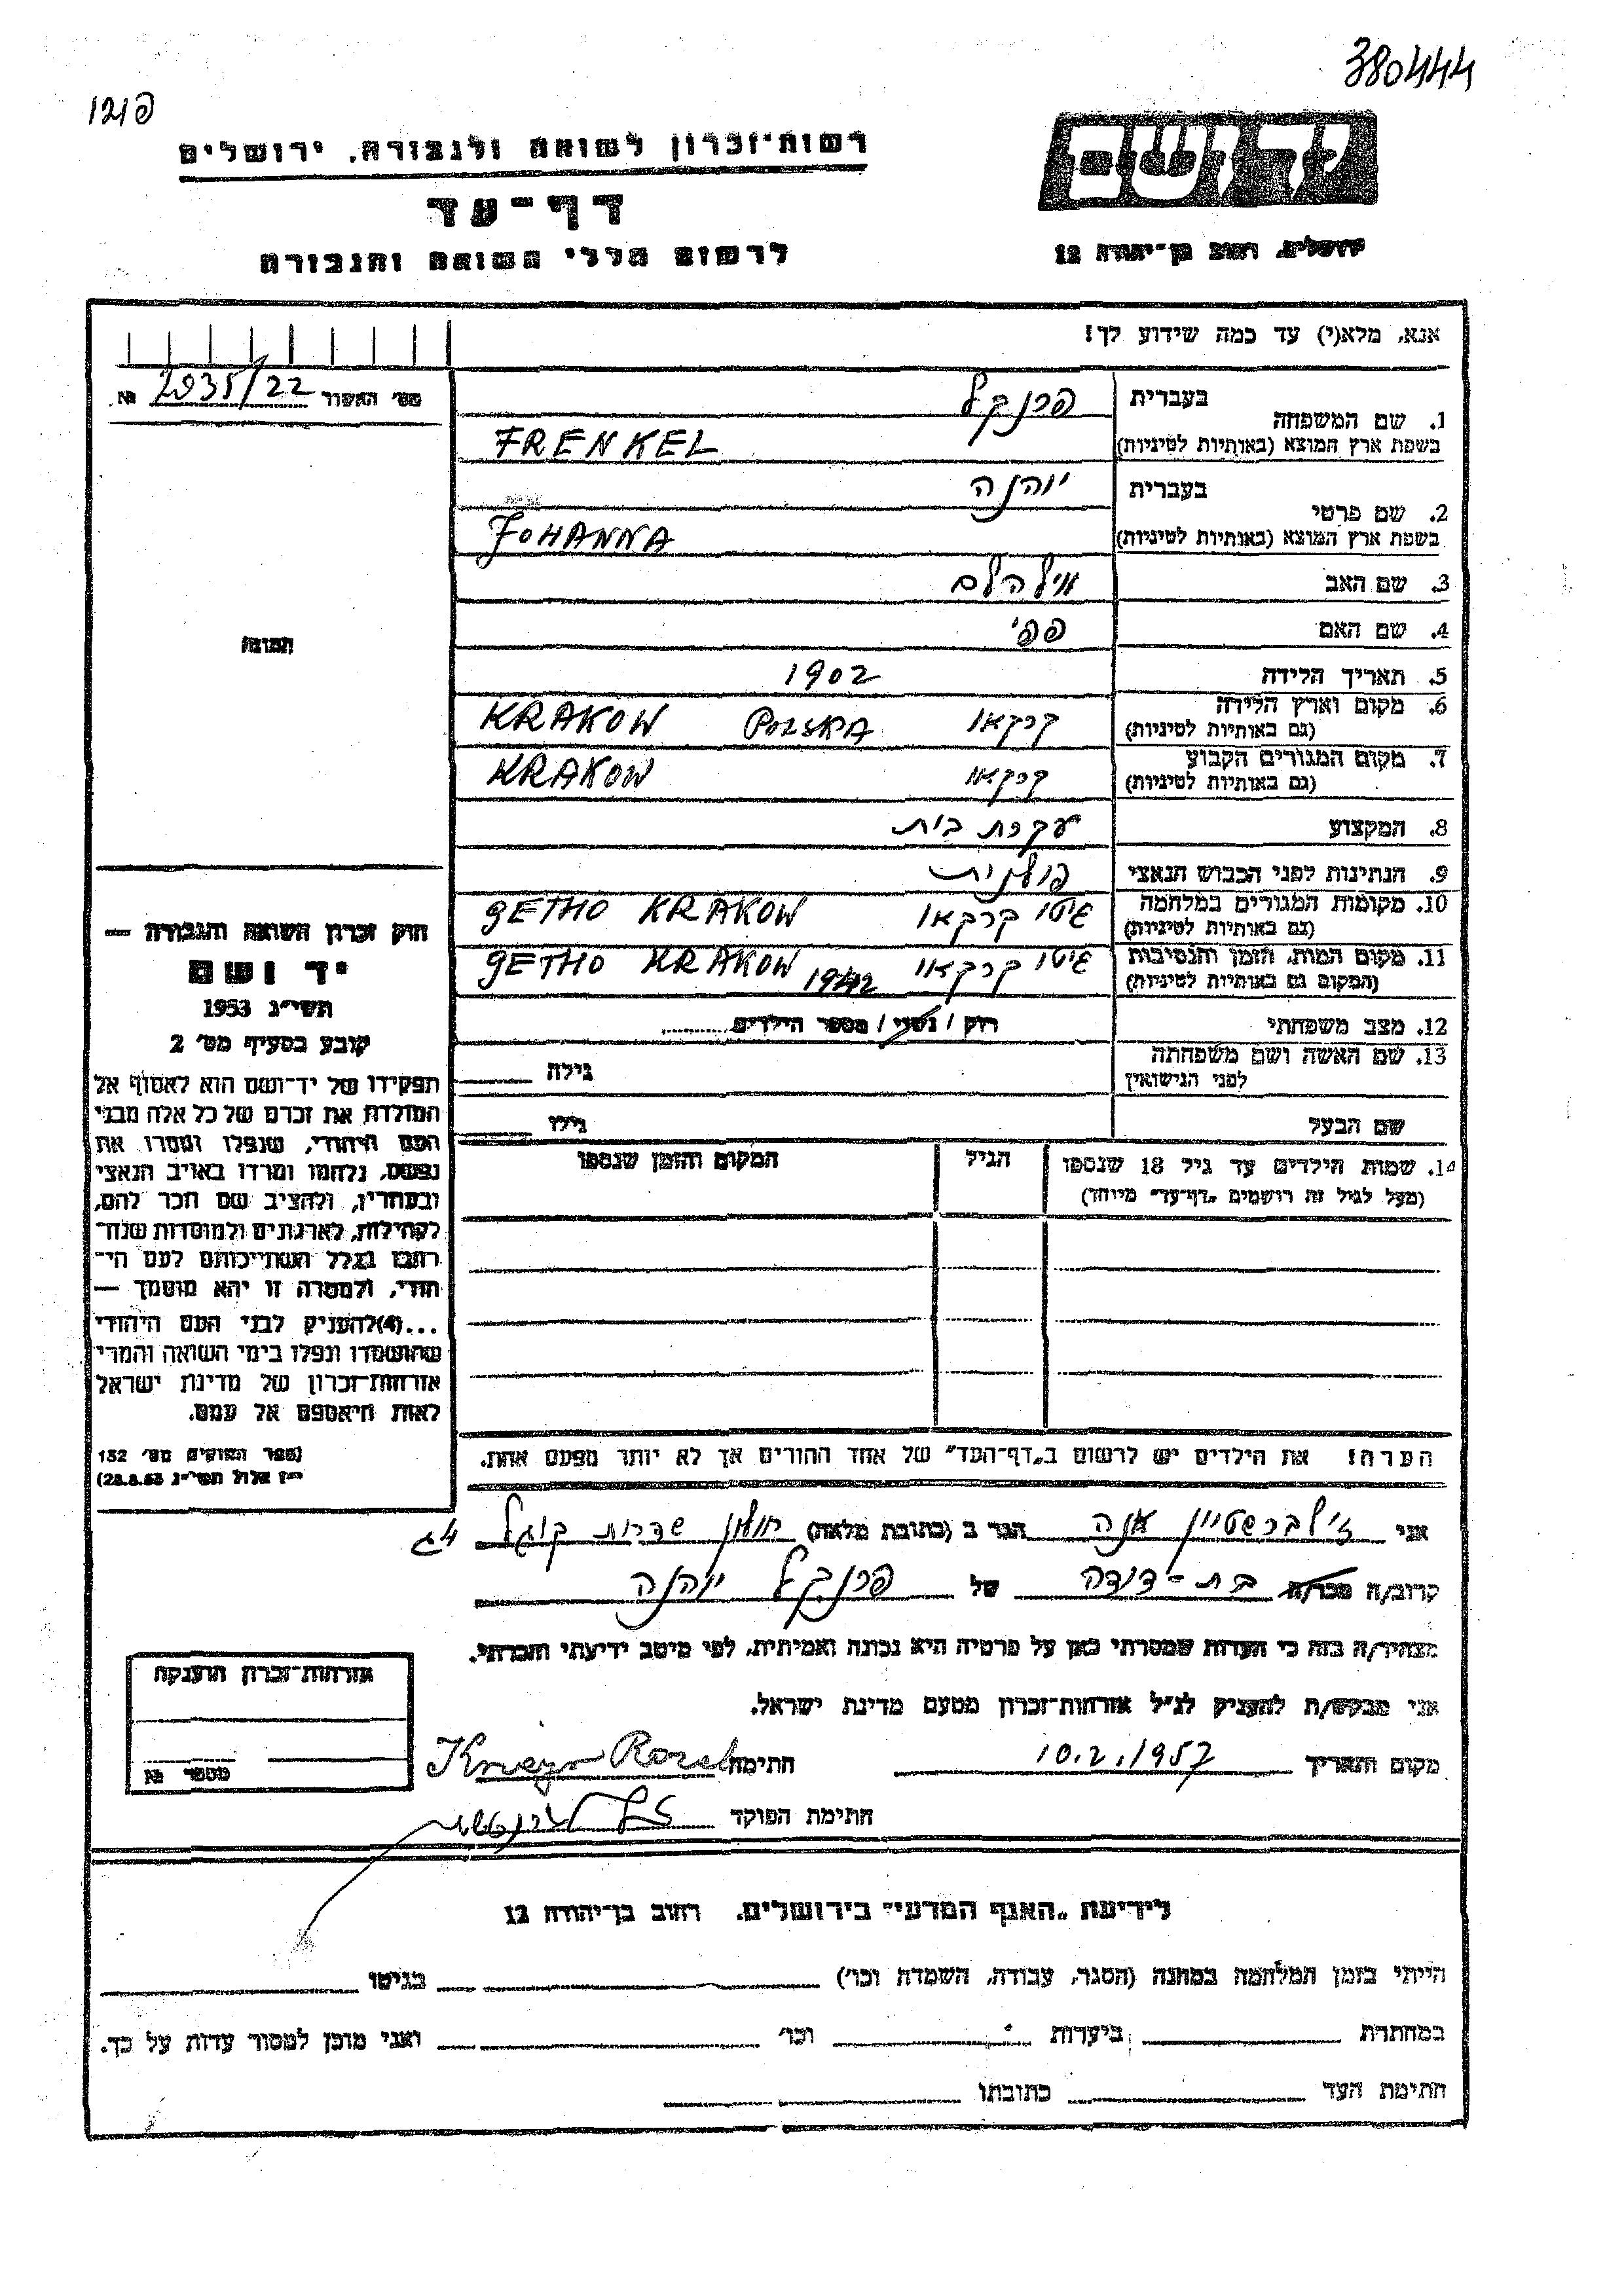 380444
פ121
רשות־זכרון לשואה ולגבורה, ירושלים
יד ושם
דף־עד
ירושלים, רחוב בן־יהודה 12
לרשום חללי השואה והגבורה
אנא, מלא(י) עד כמה שידוע לך!
מס' האשור 2035/22 №
1. שם המשפחה בעברית פרנקל
בשפת ארץ המוצא (באותיות לטיניות) FRENKEL
2. שם פרטי בעברית יוהנה
בשפת ארץ המוצא (באותיות לטיניות) JOHANNA
3. שם האב וילהלם
4. שם האם פפי
5. תאריך הלידה 1902
6. מקום וארץ הלידה (גם באותיות לטיניות) קרקאו POLSKA KRAKOW
7. מקום המגורים הקבוע (גם באותיות לטיניות) קרקאו KRAKOW
8. המקצוע עקרת בית
9. הנתינות לפני הכבוש הנאצי פולנית
10. מקומות המגורים במלחמה (גם באותיות לטיניות) גיטו קרקאו GETHO KRAKOW
11. מקום המות, הזמן והנסיבות (המקום גם באותיות לטיניות) גיטו קרקאו 1942 GETHO KRAKOW
12. מצב משפחתי רווק / נשוי / מספר הילדים
13. שם האשה ושם משפחתה לפני הנישואין גילה
שם הבעל גילו
14. שמות הילדים עד גיל 18 שנספו
(מעל לגיל זה רושמים „דף־עד" מיוחד)
הגיל
המקום והזמן שנספו
הערה! את הילדים יש לרשום ב„דף־העד" של אחד ההורים אך לא יותר מפעם אחת.
התמונה
חוק זכרון השואה והגבורה —
יד ושם
תשי"ג 1953
קובע בסעיף מס' 2
תפקידו של יד־ושם הוא לאסוף אל
המולדת את זכרם של כל אלה מבני
העם היהודי, שנפלו ומסרו את
נפשם, נלחמו ומרדו באויב הנאצי
ובעוזריו, ולהציב שם וזכר להם,
לקהילות, לארגונים ולמוסדות שנח־
רבו בגלל השתייכותם לעם הי־
הודי, ולמטרה זו יהא מוסמך —
...(4)להעניק לבני העם היהודי
שהושמדו ונפלו בימי השואה והמרי
אזרחות־זכרון של מדינת ישראל
לאות היאספם אל עמם.
(ספר החוקים מס' 132
י"ז אלול תשי"ג 28.8.53)
אני זילברשטיין אנה הגר ב (כתובת מלאה) חולון שדרות קוגל 4ג
קרוב/ה מכר/ה בת-דודה של פרנקל יוהנה
מצהיר/ה בזה כי העדות שמסרתי כאן על פרטיה היא נכונה ואמיתית, לפי מיטב ידיעתי והכרתי.
אני מבקש/ת להעניק לנ"ל אזרחות־זכרון מטעם מדינת ישראל.
מקום ותאריך 10.2.1957 חתימה
חתימת הפוקד
אזרחות־זכרון הוענקה
מספר №
לידיעת „האגף המדעי" בירושלים. רחוב בן־יהודה 12
הייתי בזמן המלחמה במחנה (הסגר, עבודה, השמדה וכו') בגיטו
במחתרת ביערות וכו' ואני מוכן למסור עדות על כך.
חתימת העד כתובתו